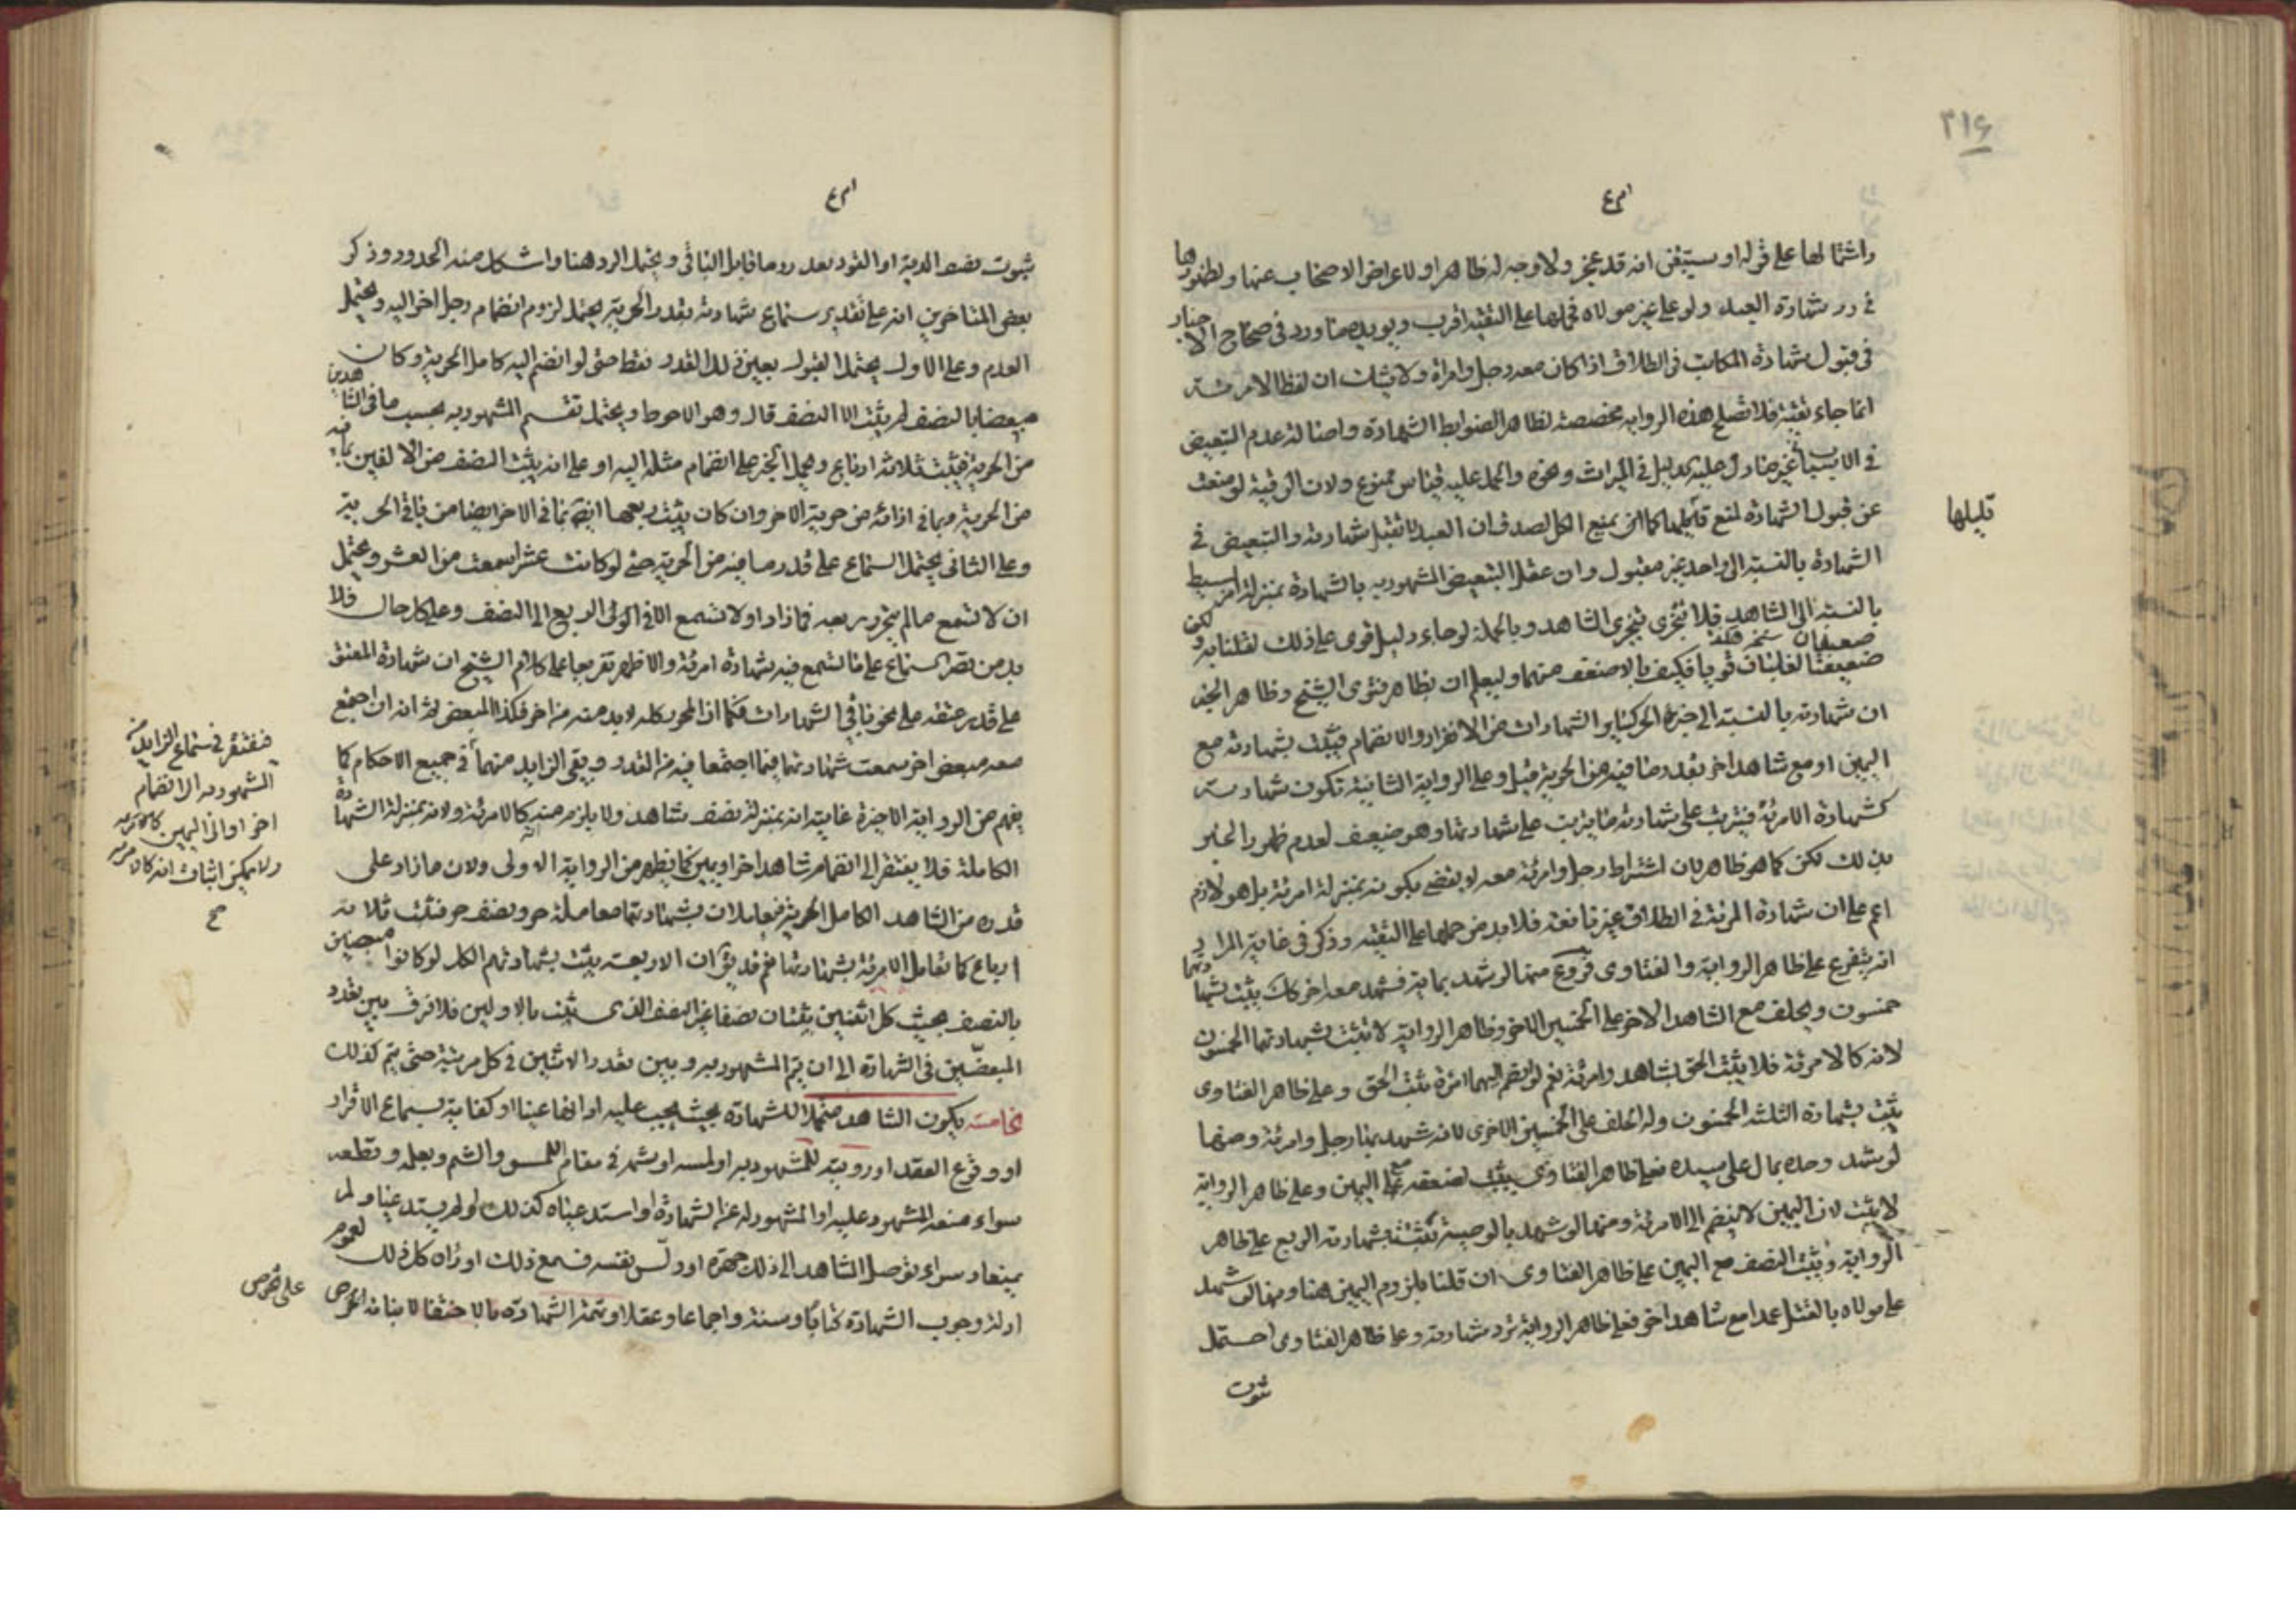 ٣١۶
واشتمالها على قوله او سيتيقن انه قد عجز ولا وجه له ظاهر او لاعراض الاصحاب عنها ولظهورها
في رد شهادة العبد ولو على غير مولاه فحملها على التقية اقرب ويؤيده ما ورد في صحاح الاخبار
في قبول شهادة المكاتب في الطلاق اذا كان معه رجل وامراة ولا شك ان لفظ الامرئة
انما جاء تقية فلا تصلح هذه الرواية مخصصة لظاهر الضوابط الشهادة واصالة عدم التبعيض
في الاسباب غير ما دل عليه الدليل في الميراث ونحوه والحمل عليه قياس ممنوع ولان الرقية لو منعت
عن قبول الشهادة لمنع قليلها كما يمنع الكل لصدق ان العبد لا تقبل شهادته والتبعيض في
قليلها
الشهادة بالنسبة الى واحد غير مقبول وان عقل التبعيض المشهود به بالشهادة بمنزلة امر بسيط
بالنسبة الى الشاهد فلا تتجزى بتجزى الشاهد وبالجملة لو جاء دليل قوي على ذلك لقلنا به ولكن
ضعيفان يغلبان قويا فكيف بالاضعف منهما وليعلم ان ظاهر فتوى الشيخ وظاهر الخبر
ان شهادته بالنسبة الى جزئه الحر كساير الشهادات من الانفراد والانضمام فيثبت بشهادته مع
اليمين او مع شاهد اخر بقدر ما فيه من الحرية قيل وعلى الرواية الثانية تكون شهادته
كشهادة الامرئة فيترتب على شهادته ما يترتب على شهادتها وهو ضعيف لعدم ظهور الخبر
بذلك لكن كما هو ظاهر لان اشتراط رجل وامرئة معه لا يقضي بكونه بمنزلة امرئة بل هو لازم
اعم على ان شهادة المرئة في الطلاق غير نافعة فلا بد من حملها على التقية وذكر في غاية المراد
انه يتفرع على ظاهر الرواية والفتاوى فروع منها لو شهد بماية فشهد معه اخر كذلك يثبت بشهادتهما
خمسون ويحلف مع الشاهد الاخر على الخمسين الاخرى وظاهر الرواية لا تثبت بشهادتهما الخمسون
لانه كالامرئة فلا يثبت الحق بشاهد وامرئة نعم لو انضم اليهما امرئة يثبت الحق وعلى ظاهر الفتاوى
يثبت بشهادة الثلثة الخمسون وله الحلف على الخمسين الاخرى لانه شهد بها رجل وامرئة ومنها
لو شهد وحده بمال على سيده فعلى ظاهر الفتاوى يثبت نصفه مع اليمين وعلى ظاهر الرواية
لا يثبت لان اليمين لا ينضم الى الامرئة ومنها لو شهد بالوصية تثبت بشهادته الربع على ظاهر
الرواية ويثبت النصف مع اليمين على ظاهر الفتاوى ان قلنا بلزوم اليمين هنا ومنها لو شهد
على مولاه بالقتل عمدا مع شاهد اخر فعلى ظاهر الرواية ترد شهادته وعلى ظاهر الفتاوى احتمل
ثبوت
ثبوت نصف الدية او القود بعد رد ما قابل الباقي ويحتمل الرد هنا واشكل منه الحدود وذكر
بعض المتاخرين انه على تقدير سماع شهادته بقدر الحرية يحتمل لزوم انضمام رجل اخر اليه ويحتمل
العدم وعلى الاول يحتمل القبول بعين ذلك القدر فقط حتى لو انضم اليه كامل الحرية وكان
مبعضا بالنصف لم يثبت الا النصف قال وهو الاحوط ويحتمل تقسم المشهود به بحسب ما في الشاهدين
من الحرية فيثبت ثلاثة ارباع ويحمل الخبر على انضمام مثله اليه او على انه يثبت النصف من الالفين بما فيه
من الحرية وبما في ازائه من حرية الاخر وان كان يثبت ربعها ايضا بما في الاخر ايضا من باقي الحرية
وعلى الثاني يحتمل السماع على قدر ما فيه من الحرية حتى لو كانت عشرا سمعت من العشر ويحتمل
ان لا تسمع ما لم يتحرر ربعه فما زاد او لا تسمع الا في الربع الى النصف وعلى كل حال فلا
بد من قصر السماع على ما تسمع فيه شهادة امرئة والاظهر تفريعا على كلام الشيخ ان شهادة المعتق
على قدر عتقه على نحو باقي الشهادات فكما ان المحرر كله لا بد معه من اخر فكذا المبعض ثم انه ان اجتمع
معه مبعض اخر سمعت شهادتهما فيما اجتمعا فيه من القدر وبقي الزايد منهما في جميع الاحكام كما
فيفتقر في سماع الزايد من
المشهود به الى انضمام
اخر او الى اليمين
ولا يمكن اثبات انه كالامرئة
صح
يفهم من الرواية الاخيرة غايته انه بمنزلة نصف شاهد ولا يلزم منه انه كالامرئة ولانه بمنزلة الشهادة
الكاملة فلا يفتقر الى انضمام شاهد اخر او يمين كما يظهر من الرواية الاولى ولان ما زاد على
قدره من الشاهد الكامل الحرية فيعاملان بشهادتهما معاملة حر ونصف حر فتثبت ثلاثة
ارباع كما تعامل الامرئة بشهادتها نعم قد يقال ان الاربعة يثبت بشهادتهم الكل لو كانوا مبعضين
بالنصف بحيث كل اثنين يثبتان نصفا غير النصف الذي يثبت بالاولين فلا فرق بين تعدد
المبعضين في الشهادة الى ان يتم المشهود به وبين تعدد الاثنين في كل مرتبة حتى يتم كذلك
خامسة يكون الشاهد متحملا للشهادة بحيث يجب عليه اداؤها عينا او كفاية بسماع الاقرار
او وقوع العقد او رويته للمشهود به او لمسه او شمه في مقام اللمس والشم وبعلمه وقطعه
سواء منعه المشهود عليه او المشهود له عن الشهادة او استدعياه كذلك لو لم يستدعيا ولم
يمنعا وسواء توصل الشاهد الى ذلك جهرة او دلس نفسه فسمع ذلك او رآه كل ذلك لعموم
ادلة وجوب الشهادة كتابا وسنة واجماعا وعقلا وتحمل الشهادة بالاختفا لا ينافيه الحرص
على حرص